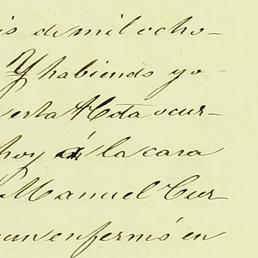 is de mil ocho-
Y habiendo yo
esta Hda ocur-
hoy á la casa
Manuel Cur-
un enfermó en